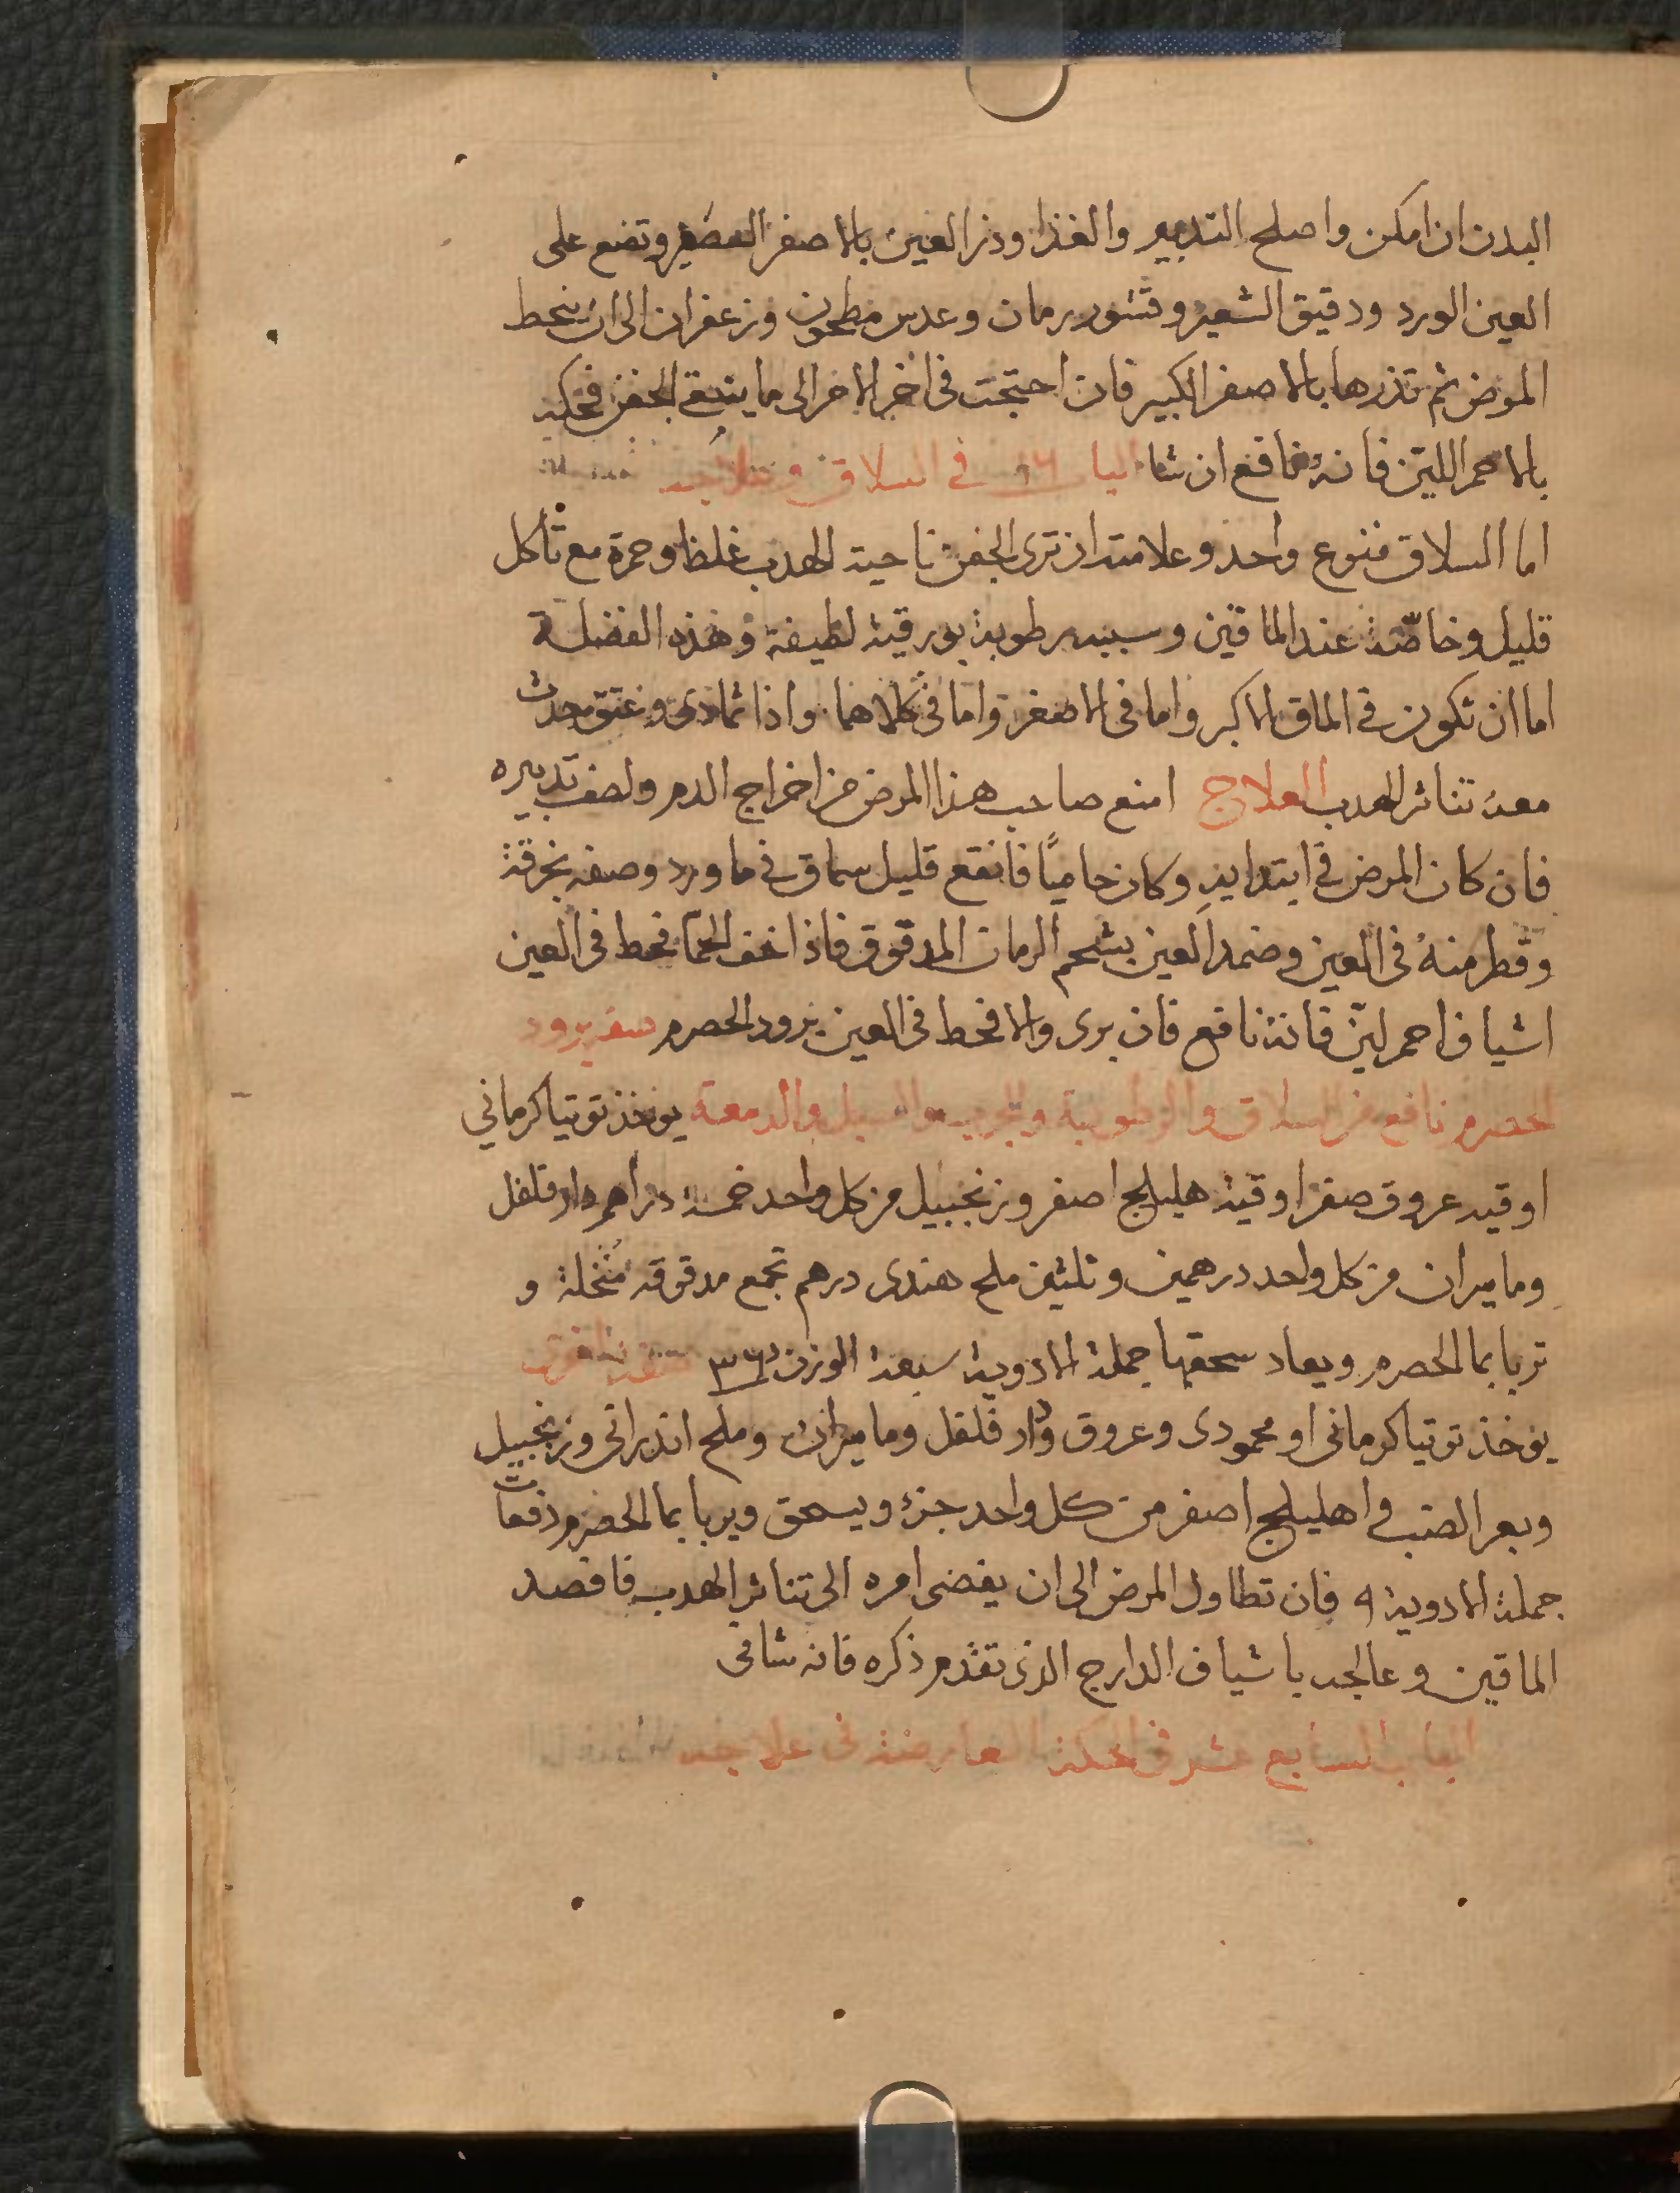 البدن ان امكن واصلح التدبير والغذا وذر العين بالاصفر الصغير وتضع على
العين الورد ودقيق الشعير وقشور رمان وعدس مطحون وزعفران الى ان ينحط
المرض ثم تذرها بالاصفر الكبير فان احتجت فى اخر الامر الى ما ينقى الجفن فحكه
بالاحمر اللين فانه نافع ان شا الباب ١٦ في السلاق وعلاجه
اما السلاق فنوع واحد وعلامته ان ترى الجفن ناحية الهدب غلظا وحمرة مع تأكل
قليل وخاصّة عند الماقين وسببه رطوبة بورقية لطيفة وهذه الفضلة
اما ان تكون في الماق الاكبر واما فى الاصغر واما في كلاهما واذا تمادى وعتق حدث
معه تناثر الهدب العلاج امنع صاحب هذا المرض من اخراج الدم ولطف تدبيره
فان كان المرض في ابتدايه وكان حامياً فانقع قليل سماق في ما ورد وصفه بخرقة
وقطر منه فى العين وضمد العين بشحم الرمان المدقوق فاذا خف الحما فحط فى العين
اشياف احمر ليّن فانه نافع فان برى والا فحط فى العين برود الحصرم صفة برود
الحصرم نافع من السلاق والرطوبة والجرب والسبل والدمعة يوخذ توتيا كرماني
اوقيه عروق صفر اوقية هليلج اصفر وزنجبيل من كل واحد خمسة دراهم دار فلفل
وماميران من كل واحد درهمين وثلثين ملح هندى درهم تجمع مدقوقه منخلة و
تربا بما الحصرم ويعاد سحقها جملة الادوية سبعة الوزن
يوخذ توتيا كرمانى او محمودى وعروق ودار فلفل وماميران وملح اندرانى وزنجبيل
وبعر الضب و اهليلج اصفر من كل واحد جزء ويسحق ويربا بما الحصرم دفعات
جملة الادوية ٩ فان تطاول المرض الى ان يفضى امره الى تناثر الهدب فافصد
الماقين وعالجه باشياف الدارج الذى تقدم ذكره فانه شافى
الباب السابع عشر في الحكة العارضة فى علاجه